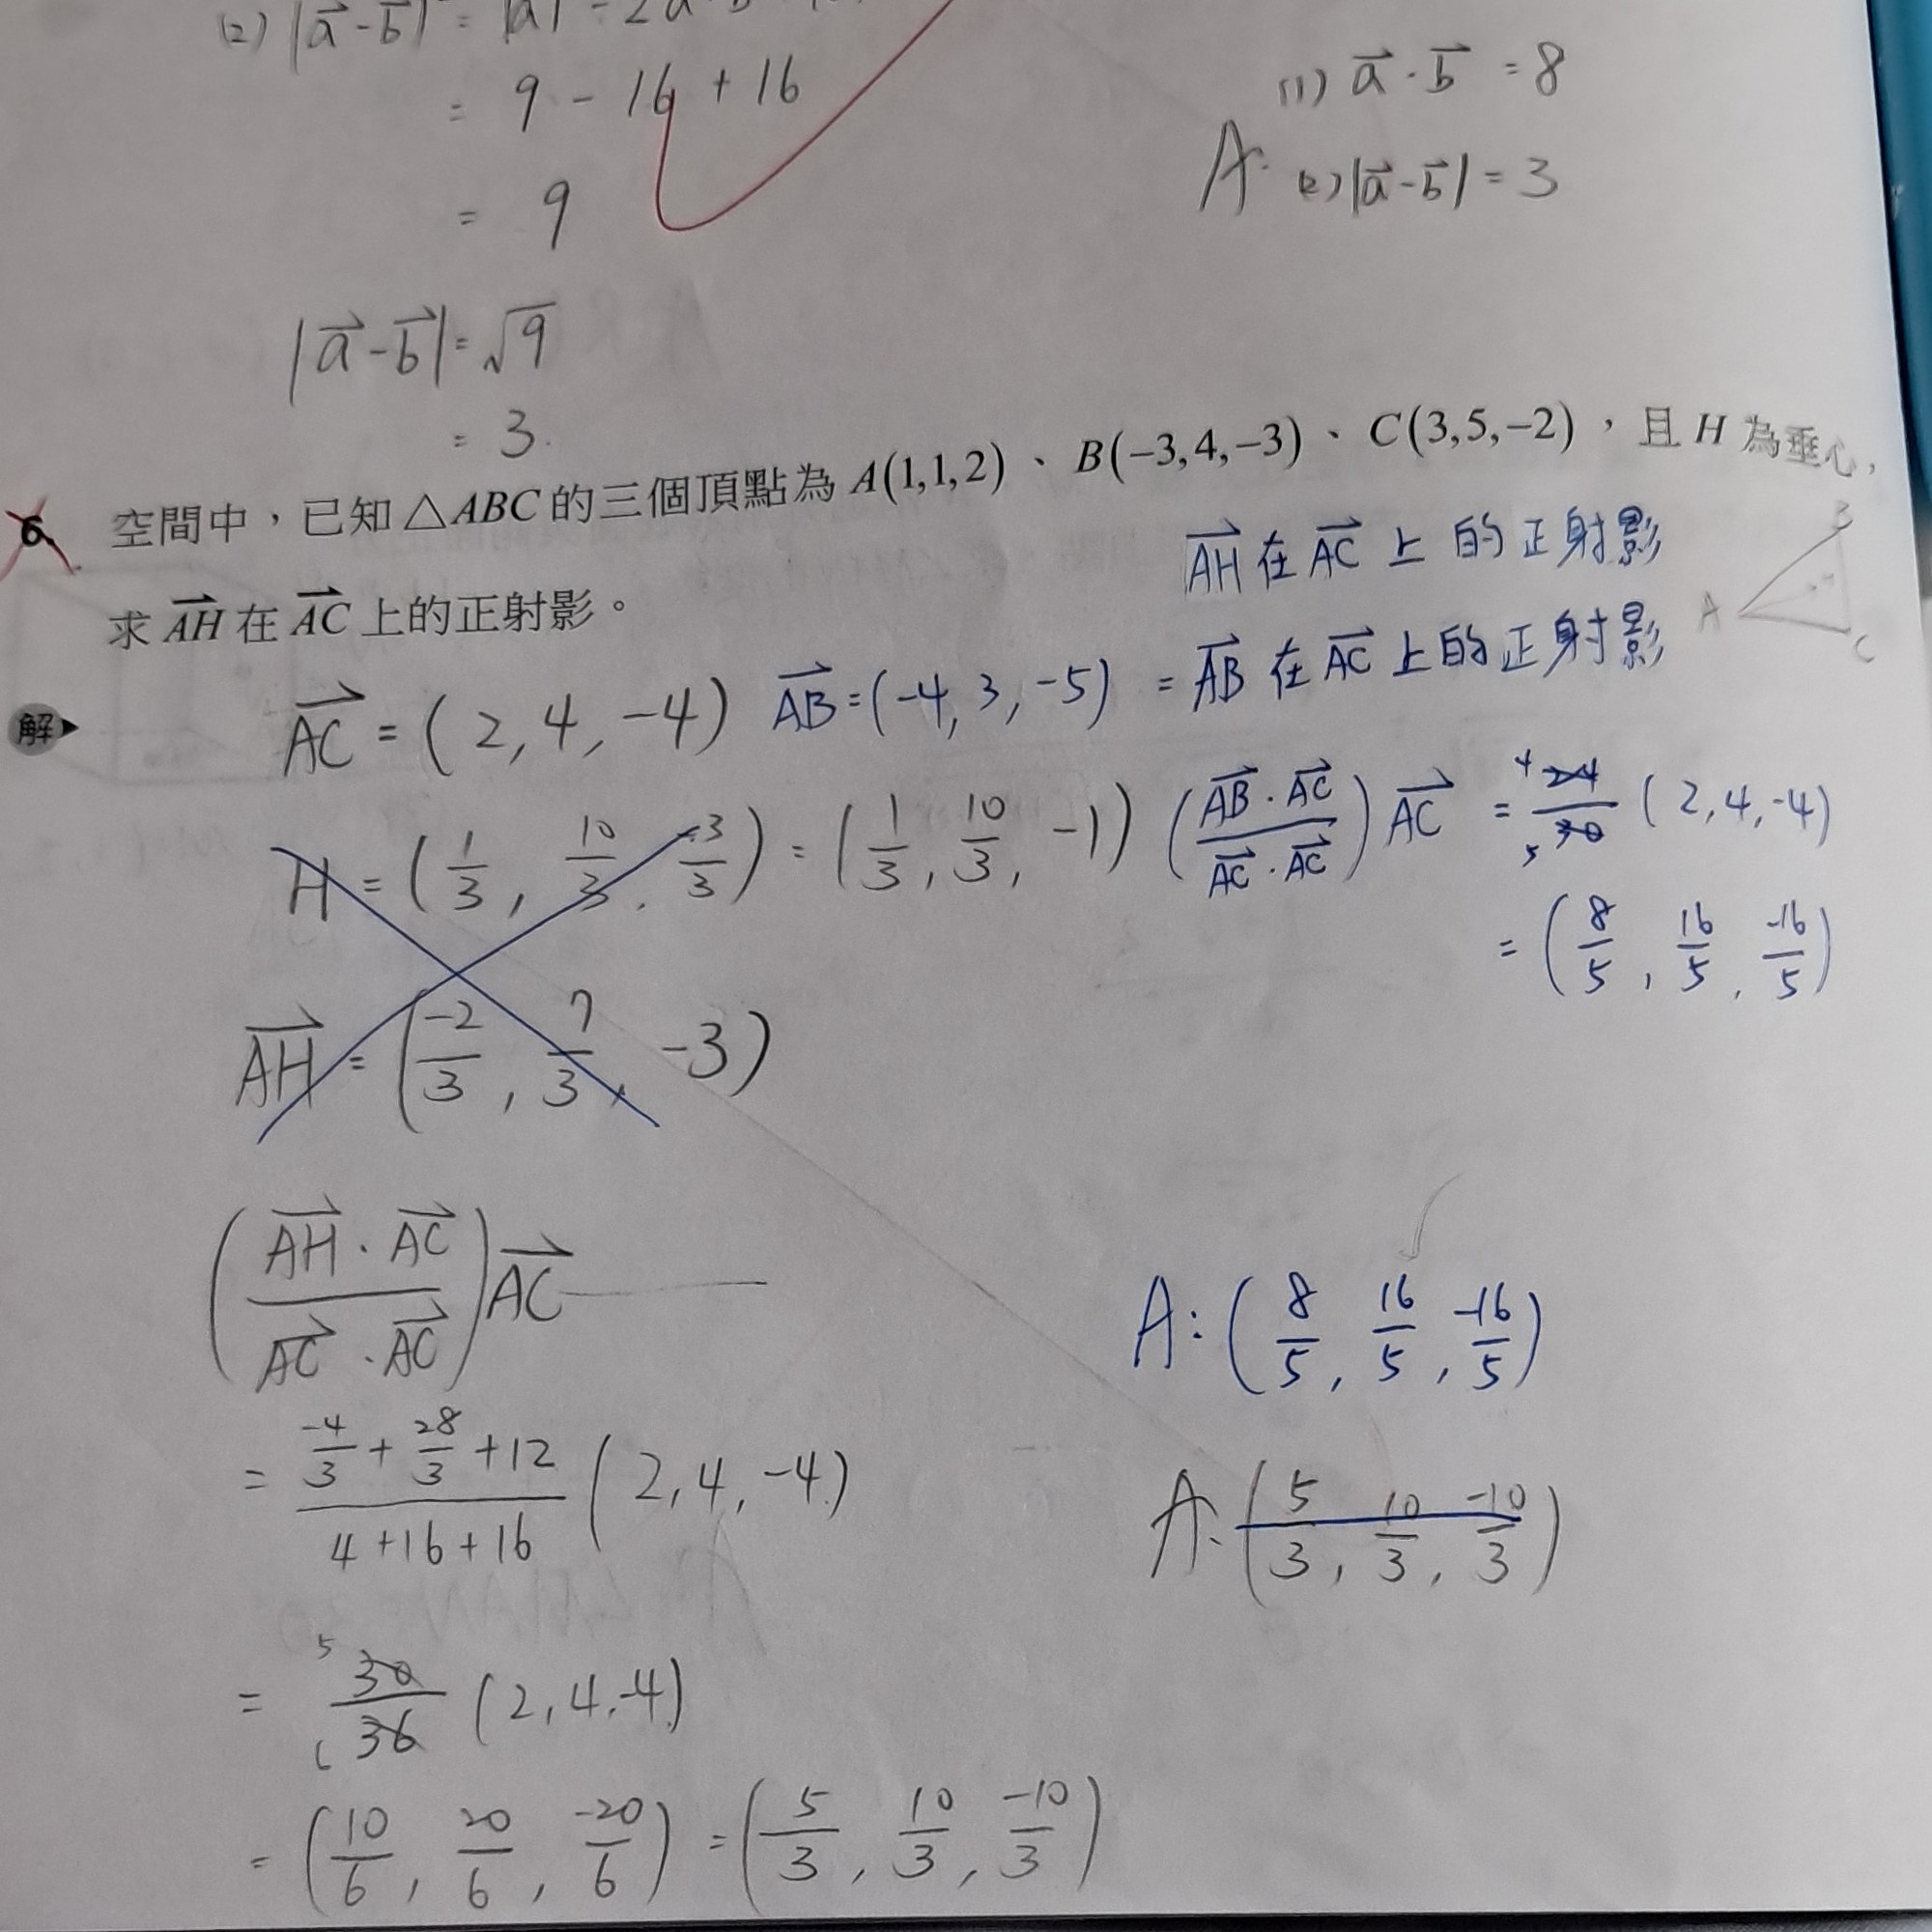 (2) |a⃗-b⃗| = |a| - 2a
= 9 - 16 + 16
(1) a⃗·b⃗ = 8
= 9
A: (2) |a⃗-b⃗| = 3
|a⃗-b⃗| = √9
= 3.
6. 空間中，已知△ABC的三個頂點為A(1,1,2)、B(-3,4,-3)、C(3,5,-2)，且H為垂心，
求AH⃗在AC⃗上的正射影。
AH⃗在AC⃗上的正射影
= AB⃗在AC⃗上的正射影
B
A
C
解 AC⃗ = (2,4,-4) AB⃗ = (-4,3,-5)
H = (1/3, 10/3, -3/3) = (1/3, 10/3, -1)
(AB⃗·AC⃗/AC⃗·AC⃗)AC⃗ = 4 24/5 30 (2,4,-4)
= (8/5, 16/5, -16/5)
AH⃗ = (-2/3, 7/3, -3)
(AH⃗·AC⃗/AC⃗·AC⃗)AC⃗
A: (8/5, 16/5, -16/5)
= (-4/3 + 28/3 + 12)/(4+16+16) (2,4,-4)
A: (5/3, 10/3, -10/3)
= 5 30/6 36 (2,4,-4)
= (10/6, 20/6, -20/6) = (5/3, 10/3, -10/3)